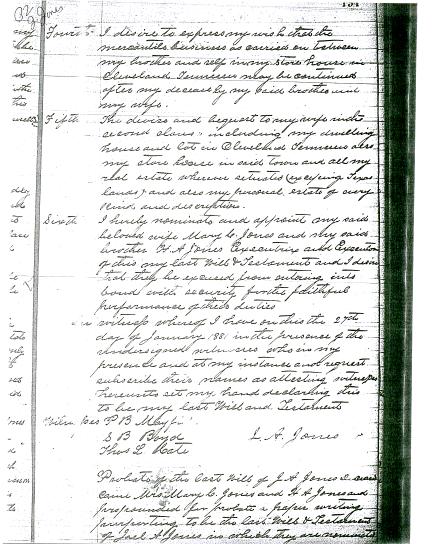 Jones
Fourth I desire to express my wish that the
mercantile business as carried on between
my brother and self in my store house in
Cleveland Tennessee may be continued
after my decease by my said brother and
my wife.
Fifth The devise and bequest to my wife in the
second clause including my dwelling
house and lot in Cleveland Tennessee also
my store house in said town and all my
real estate wherever situated (excepting Texas
lands) and also my personal estate of every
kind and description.
Sixth I hereby nominate and appoint my said
beloved wife Mary C. Jones and my said
brother H A Jones Executrix and Executor
of this my last Will & Testament and I desire
that they be excused from entering into
bond with security for the faithful
performance of their duties
In witness whereof I have on this the 27th
day of January 1881 in the presence of the
undersigned witnesses who in my
presence and at my instance and request
subscribe their names as attesting witnesses
hereunto set my hand declaring this
to be my last Will and Testament
Witnesses P B Mayfi
S B Boyd J. A. Jones
Thos L Cate
Probate of the last Will of J A Jones
Came Mrs Mary C. Jones and H A Jones and
propounded for probate a paper writing
purporting to be the last Will & Testament
of A Jones in which they are nominated